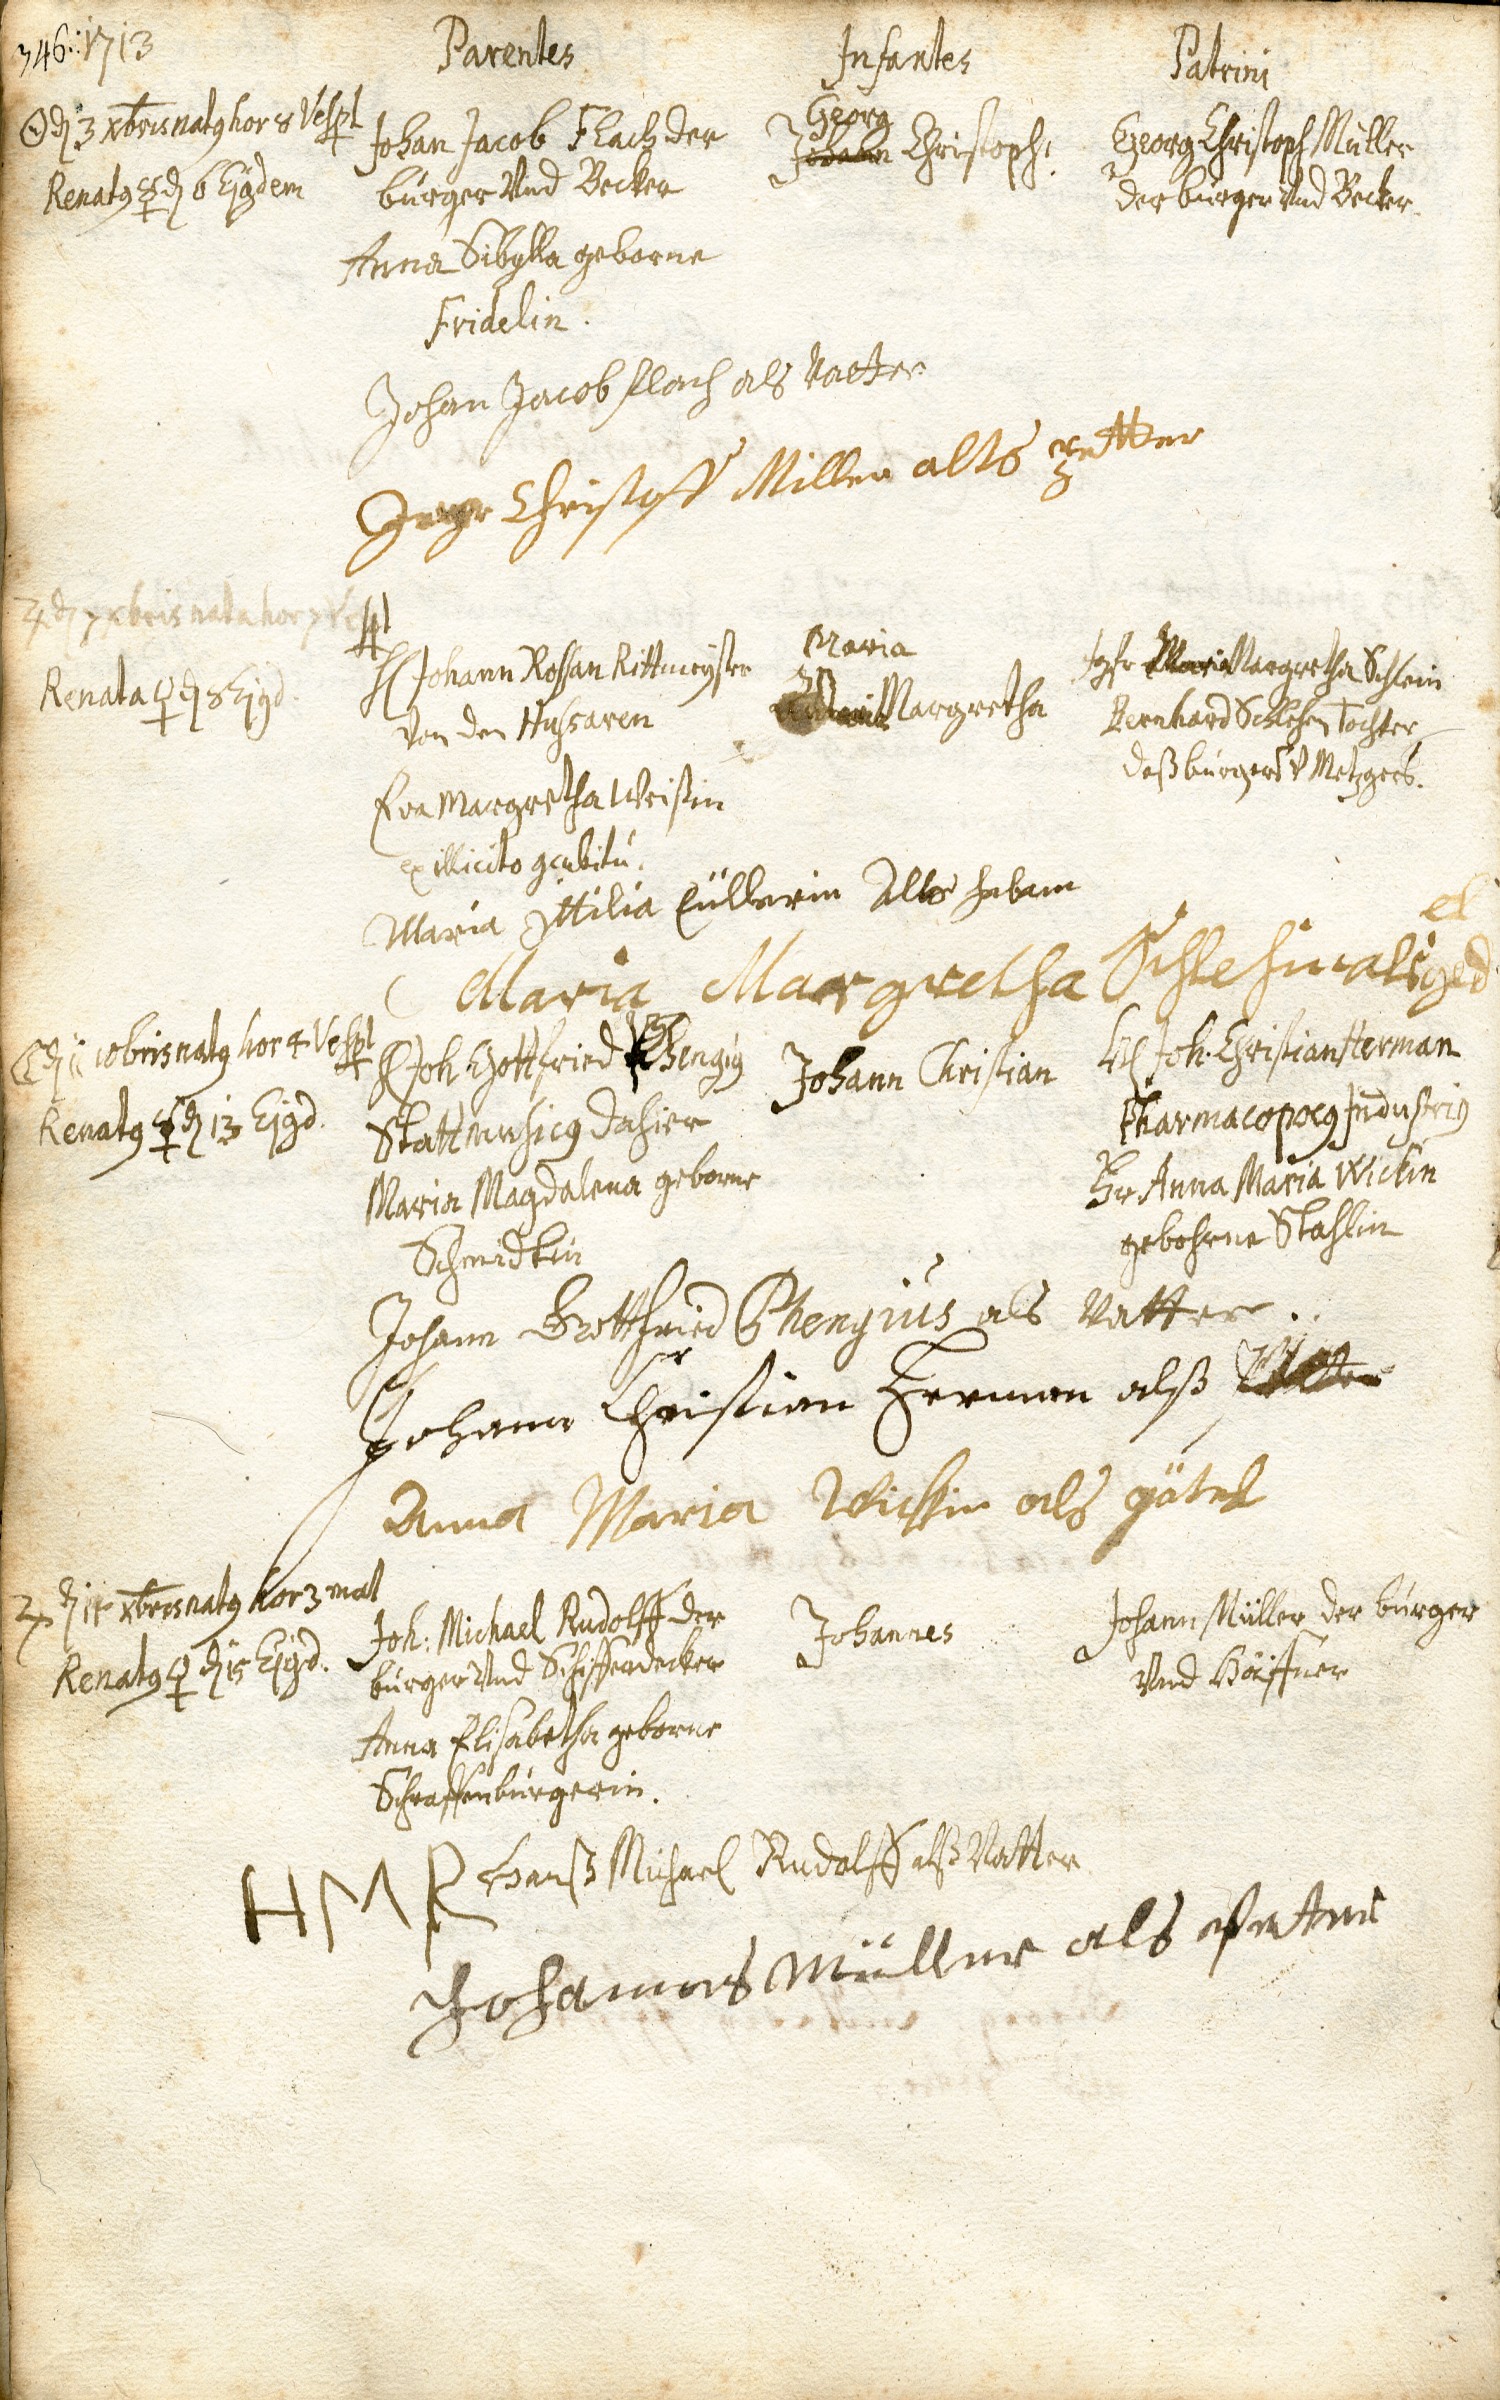 346. 1713
Parentes
Infantes
Patrini
☉ d 3 xbris natg hor 8 Vesp
Renatg ☿ d 6 Ejgdem
Johan Jacob Flach der
bürger Vnd Becker
Anna Sibylla geborne
Fridelin.
Georg
Johann Christoph.
Georg Christoph Müller
der bürger Vnd Becker.
Johan Jacob flach als Vatter
Christoff Miller alls
♃ d 7 xbris nata hor 7 Ve
Renata ♀ d 8 Ejgd.
H Johann Rossan Rittmeyster
Von den Hussaren
Eva Margretha Weissin
ex illicito gcubitu.
Maria
Margretha
Jgfr Maria Margretha Schlein
Bernhard Schlehen Tochter
deß burgers V Metzgers.
Maria Ottilia Cüllerin Alls hebam
Maria Margretha Schlehin als god
el
☾ d 11 10bris natg hor 4 Vesp
Renatg ☿ d 13 Ejgd.
H Joh. Gottfried Phengig
Stattmusicg dahier
Maria Magdalena geborne
Schmidtin
Johann Christian
H Joh. Christian Herman
Pharmacopoeg Industrig
Fr Anna Maria Wickin
gebohrne Stahlin
Johann Gottfried Phengius als Vatter.
Johann Christian Herman alß
Anna Maria Wickin als götel
♃ d 14 xbris natg hor 3 mat
Renatg ♀ d 15 Ejgd.
Joh: Michael Rudolff der
bürger Vnd Schiffendecker
Anna Elisabetha geborne
Schaffenburgerin.
Johannes
Johann Müller der bürger
Vnd Häffner
HMR Hanß Michael Rudolff alß Vatter
Johannes Müller als